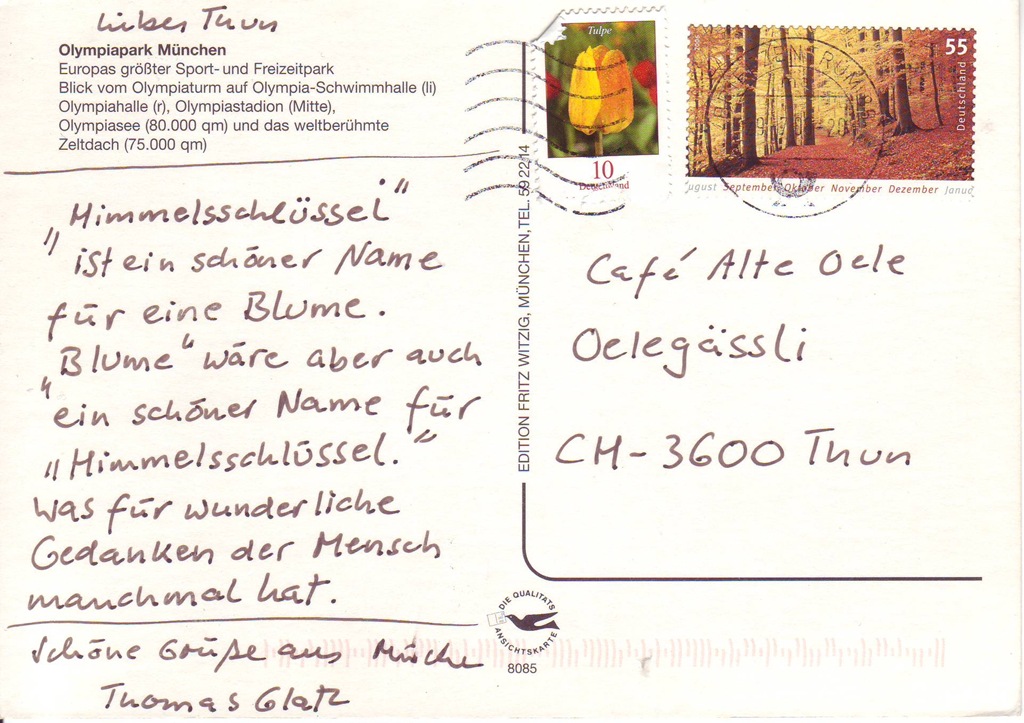 Lieber Thun
Olympiapark München
Europas größter Sport- und Freizeitpark
Blick vom Olympiaturm auf Olympia-Schwimmhalle (li)
Olympiahalle (r), Olympiastadion (Mitte),
Olympiasee (80.000 qm) und das weltberühmte
Zeltdach (75.000 qm)
„Himmelsschlüssel“
ist ein schöner Name
für eine Blume.
„Blume“ wäre aber auch
ein schöner Name für
„Himmelsschlüssel.“
Was für wunderliche
Gedanken der Mensch
manchmal hat.
Schöne Grüße aus Münche
Thomas Glatz
EDITION FRITZ WITZIG, MÜNCHEN, TEL. 59 22 14
DIE QUALITÄTS
ANSICHTSKARTE
8085
Tulpe
10
Deutschland
55
Deutschland
ugust September Oktober November Dezember Janua
Café Alte Oele
Oelegässli
CH-3600 Thun